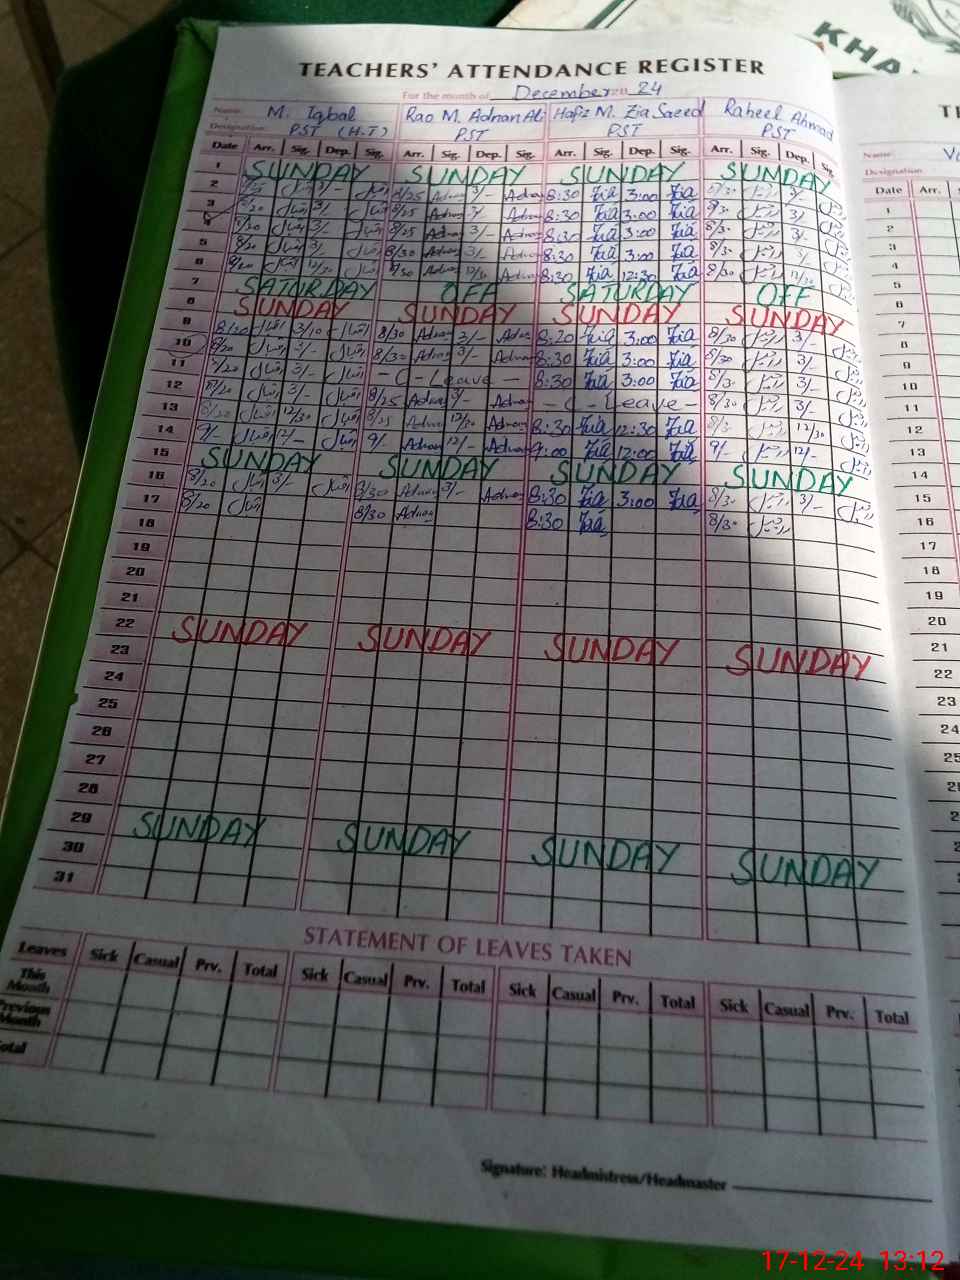 KHA
TEACHERS' ATTENDANCE REGISTER
For the month of December 24
Name: M. Iqbal Rao M. Adnan Ali Hafiz M. Zia Saeed Raheel Ahmad
Designation: PST (H.T) PST PST PST
Date Arr. Sig. Dep. Sig. Arr. Sig. Dep. Sig. Arr. Sig. Dep. Sig. Arr. Sig. Dep. Sig.
1 SUNDAY SUNDAY SUNDAY SUNDAY
2 اقبال 3/- اقبال 8/25 Adnan 3/- Adnan 8:30 Zia 3:00 Zia 8/30 3/-
3 8/20 اقبال 3/- اقبال 8/25 Adnan 3/- Adnan 8:30 Zia 3:00 Zia 8/30 3/-
4 8/20 اقبال 3/- اقبال 8/25 Adnan 3/- Adnan 8:30 Zia 3:00 Zia 8/30 3/-
5 8/20 اقبال 3/- اقبال 8/30 Adnan 3/- Adnan 8:30 Zia 3:00 Zia 8/30 3/-
6 8/20 اقبال 12/30 اقبال 8/30 Adnan 12/30 Adnan 8:30 Zia 12:30 Zia 8/30 12/30
7 SATURDAY OFF SATURDAY OFF
8 SUNDAY SUNDAY SUNDAY SUNDAY
9 8/20 اقبال 3/10 اقبال 8/30 Adnan 3/- Adnan 8:20 Zia 3:00 Zia 8/30 3/-
10 8/20 اقبال 3/- اقبال 8/30 Adnan 3/- Adnan 8:30 Zia 3:00 Zia 8/30 3/-
11 8/20 اقبال 3/- اقبال - C - Leave - 8:30 Zia 3:00 Zia 8/30 3/-
12 8/20 اقبال 3/- اقبال 8/25 Adnan 3/- Adnan - C - Leave - 8/30 3/-
13 8/20 اقبال 12/30 اقبال 8/25 Adnan 12/30 Adnan 8:30 Zia 12:30 Zia 8/30 12/30
14 9/- اقبال 12/- اقبال 9/- Adnan 12/- Adnan 9:00 Zia 12:00 Zia 9/- 12/-
15 SUNDAY SUNDAY SUNDAY SUNDAY
16 8/20 اقبال 3/- اقبال 8/30 Adnan 3/- Adnan 8:30 Zia 3:00 Zia 8/30 3/-
17 8/20 اقبال 8/30 Adnan 8:30 Zia 8/30
18
19
20
21
22 SUNDAY SUNDAY SUNDAY SUNDAY
23
24
25
26
27
28
29 SUNDAY SUNDAY SUNDAY SUNDAY
30
31
STATEMENT OF LEAVES TAKEN
Leaves Sick Casual Prv. Total Sick Casual Prv. Total Sick Casual Prv. Total Sick Casual Prv. Total
This Month
Previous Month
Total
Signature: Headmistress/Headmaster
Name:
Designation
Date Arr.
1
2
3
4
5
6
7
8
9
10
11
12
13
14
15
16
17
18
19
20
21
22
23
24
17-12-24 13:12